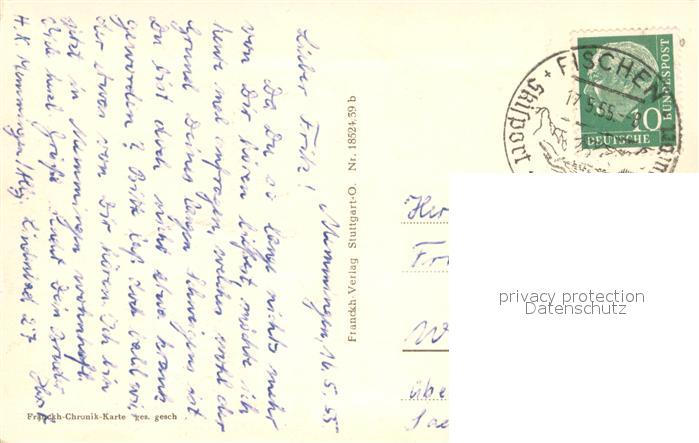 Memmingen, 16.5.55
Lieber Fritz!
Da Du so lange nichts mehr
von Dir hören ließest, möchte ich
heute mal anfragen, welches wohl der
Grund Deines langen Schweigens ist.
Du bist doch nicht etwa krank
geworden? Bitte laß doch bald wie-
der etwas von Dir hören. Ich bin
jetzt in Memmingen wohnhaft.
herzl. Grüße Dein
Memmingen/Allg.
Franckh-Chronik-Karte ges. gesch
Franckh-Verlag Stuttgart-O. Nr. 18524.39 b
FISCHEN
17.5.55.-8
Skisport
10
DEUTSCHE
BUNDESPOST
Her
W
übe
privacy protection
Datenschutz